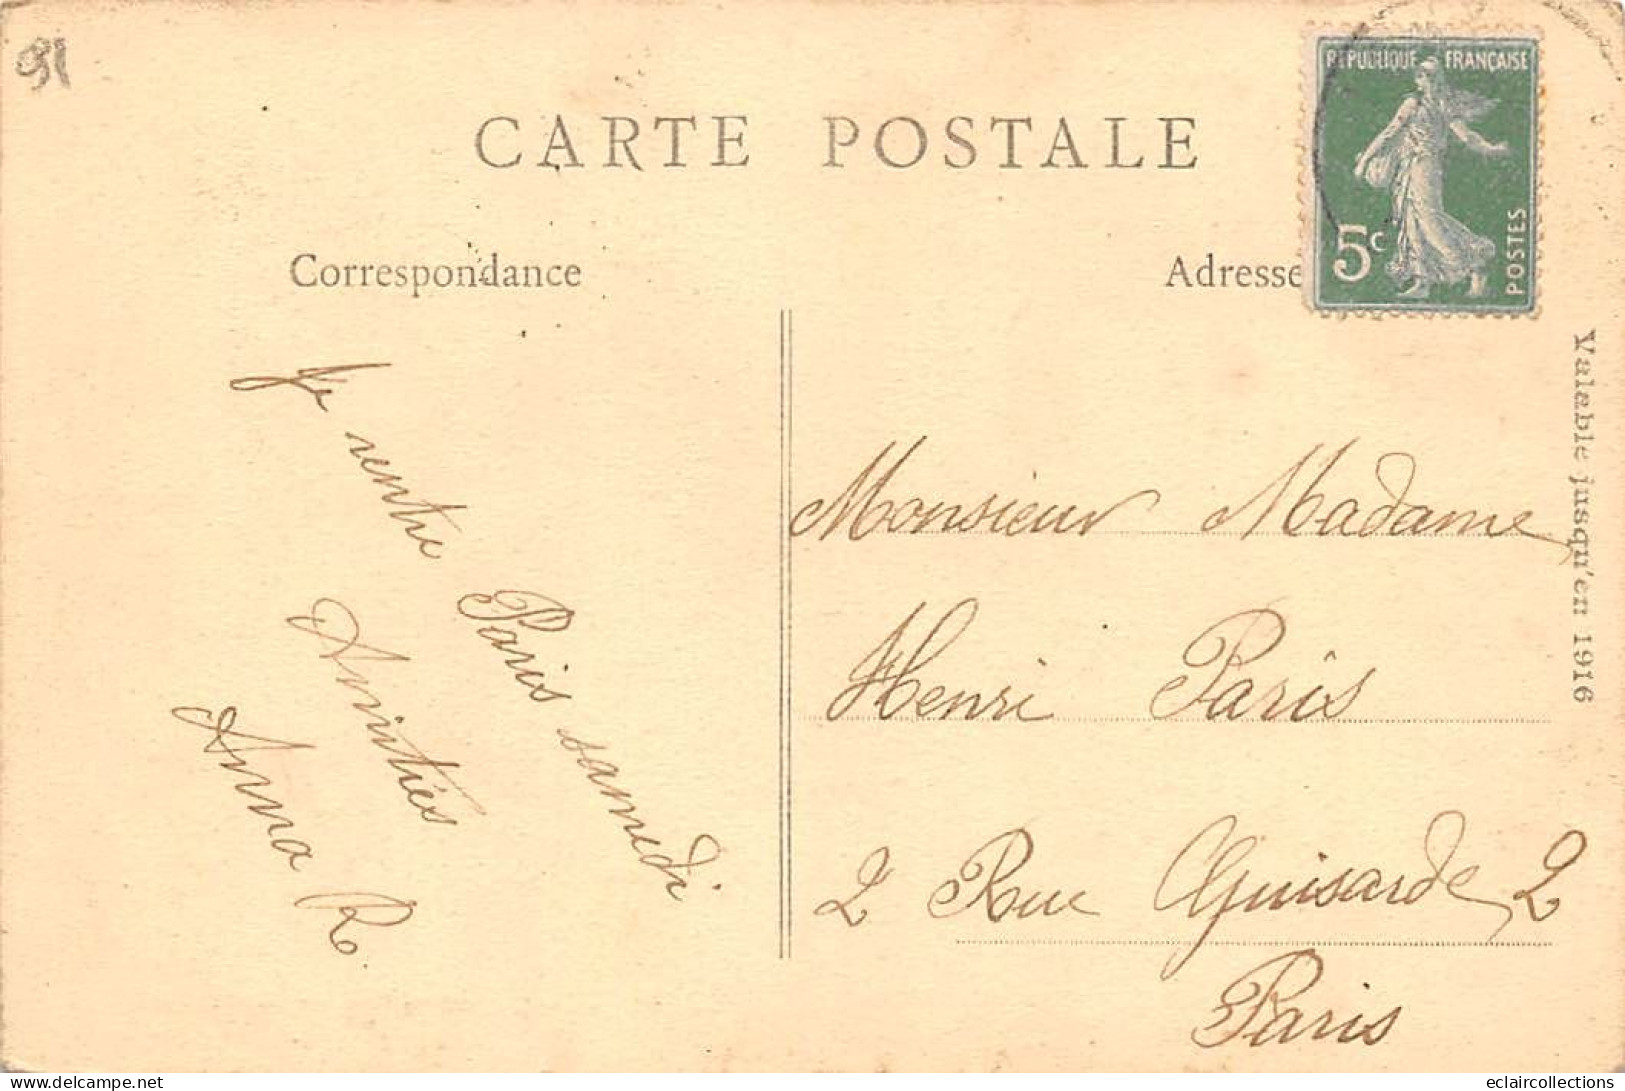 91
CARTE POSTALE
REPUBLIQUE FRANÇAISE
5c
POSTES
Correspondance
Adresse
Valable jusqu'en 1916
Je rentre Paris samedi
Amitiés
Anna R.
Monsieur Madame
Henri Pâris
2 Rue Guisarde, 2
Paris
www.delcampe.net
eclaircollections